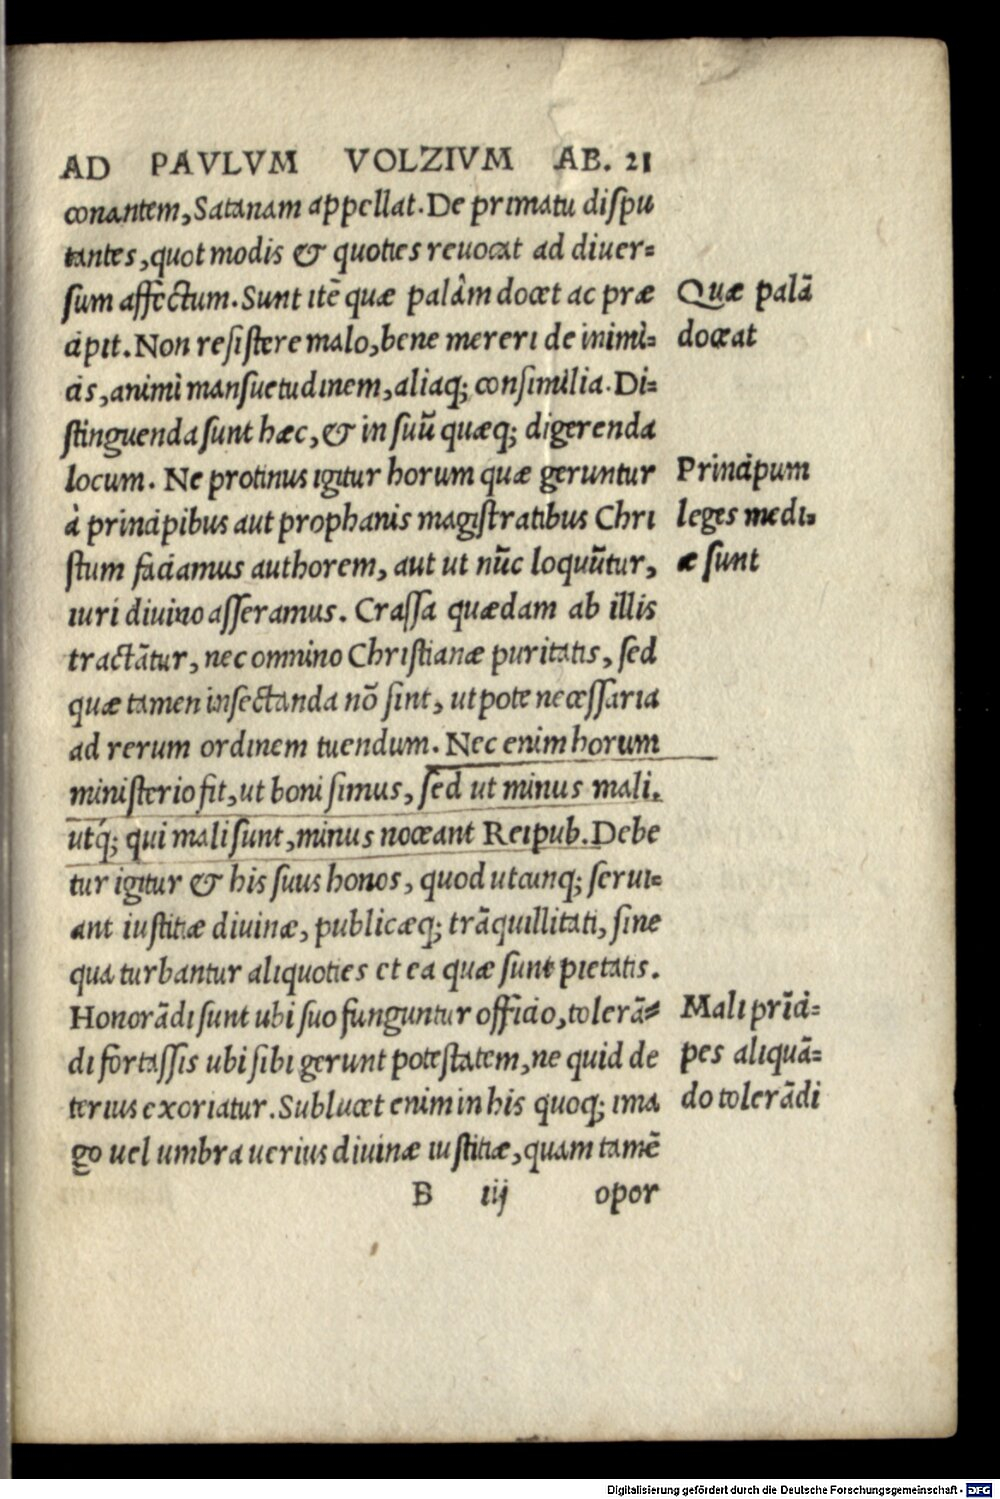 AD PAVLVM VOLZIVM AB. 21
conantem, Satanam appellat. De primatu dispu
tantes, quot modis & quoties reuocat ad diuer=
sum affectum. Sunt itē quæ palàm docet ac præ
cipit. Non resistere malo, bene mereri de inimi=
cis, animi mansuetudinem, aliaq; consimilia. Di=
stinguenda sunt hæc, & in suū quæq; digerenda
locum. Ne protinus igitur horum quæ geruntur
à principibus aut prophanis magistratibus Chri
stum faciamus authorem, aut ut nūc loquūtur,
iuri diuino asseramus. Crassa quædam ab illis
tractātur, nec omnino Christianæ puritatis, sed
quæ tamen insectanda nō sint, utpote necessaria
ad rerum ordinem tuendum. Nec enim horum
ministerio fit, ut boni simus, sed ut minus mali,
utq́; qui mali sunt, minus noceant Reipub. Debe
tur igitur & his suus honos, quod utcunq; serui=
ant iustitiæ diuinæ, publicæq; trāquillitati, sine
qua turbantur aliquoties et ea quæ sunt pietatis.
Honorādi sunt ubi suo funguntur officio, tolerā=
di fortassis ubi sibi gerunt potestatem, ne quid de
terius exoriatur. Sublucet enim in his quoq; ima
go uel umbra uerius diuinæ iustitiæ, quam tamē
B iij opor
Quæ palā
doceat
Principum
leges medi=
æ sunt
Mali prīci=
pes aliquā=
do tolerādi
Digitalisierung gefördert durch die Deutsche Forschungsgemeinschaft - DFG